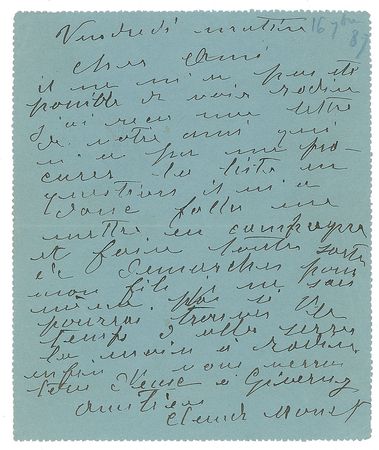 Vendredi matin 16 7bre 87
cher ami
il ne m'a pas été
possible de voir Rodin
j'ai reçu une lettre
de notre ami qui
n'a pu me pro-
curer la liste en
question il m'a
donc fallu me
mettre en campagne
et faire toutes sortes
de démarches pour
mon fils je ne sais
même pas si je
pourrai trouver le
temps d'aller serrer
la main à Rodin
enfin je vous verrai
tous deux à Giverny
amitiés
Claude Monet